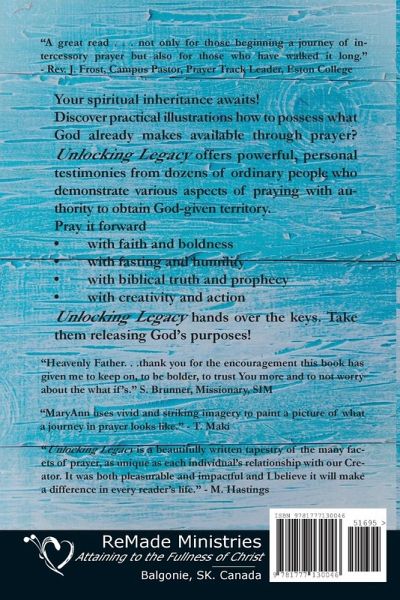 “A great read . . . not only for those beginning a journey of in-
tercessory prayer but also for those who have walked it long.”
- Rev. J. Frost, Campus Pastor, Prayer Track Leader, Eston College
Your spiritual inheritance awaits!
Discover practical illustrations how to possess what
God already makes available through prayer?
Unlocking Legacy offers powerful, personal
testimonies from dozens of ordinary people who
demonstrate various aspects of praying with au-
thority to obtain God-given territory.
Pray it forward
• with faith and boldness
• with fasting and humility
• with biblical truth and prophecy
• with creativity and action
Unlocking Legacy hands over the keys. Take
them releasing God’s purposes!
“Heavenly Father. . .thank you for the encouragement this book has
given me to keep on, to be bolder, to trust You more and to not worry
about the what if’s.” S. Brunner, Missionary, SIM
“MaryAnn uses vivid and striking imagery to paint a picture of what
a journey in prayer looks like.” - T. Maki
“Unlocking Legacy is a beautifully written tapestry of the many fac-
ets of prayer, as unique as each individual’s relationship with our Cre-
ator. It was both pleasurable and impactful and I believe it will make
a difference in every reader’s life.” - M. Hastings
ISBN 9781777130046
51695>
9 781777 130046
ReMade Ministries
Attaining to the Fullness of Christ
Balgonie, SK. Canada